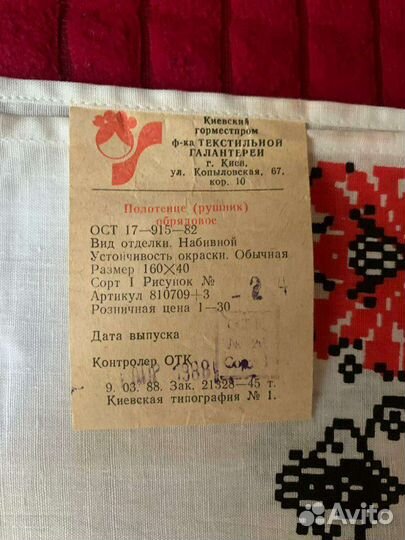 Киевский
горместпром
ф-ка ТЕКСТИЛЬНОЙ
ГАЛАНТЕРЕИ
г. Киев,
ул. Копыловская, 67,
кор. 10
Полотенце (рушник)
обрядовое
ОСТ 17—915—82
Вид отделки. Набивной
Устойчивость окраски. Обычная
Размер 160×40
Сорт I Рисунок № 24
Артикул 810709+3
Розничная цена 1—30
Дата выпуска
Контролер ОТК
Сорт
1988
9. 03. 88. Зак. 21328—45 т.
Киевская типография № 1.
Avito